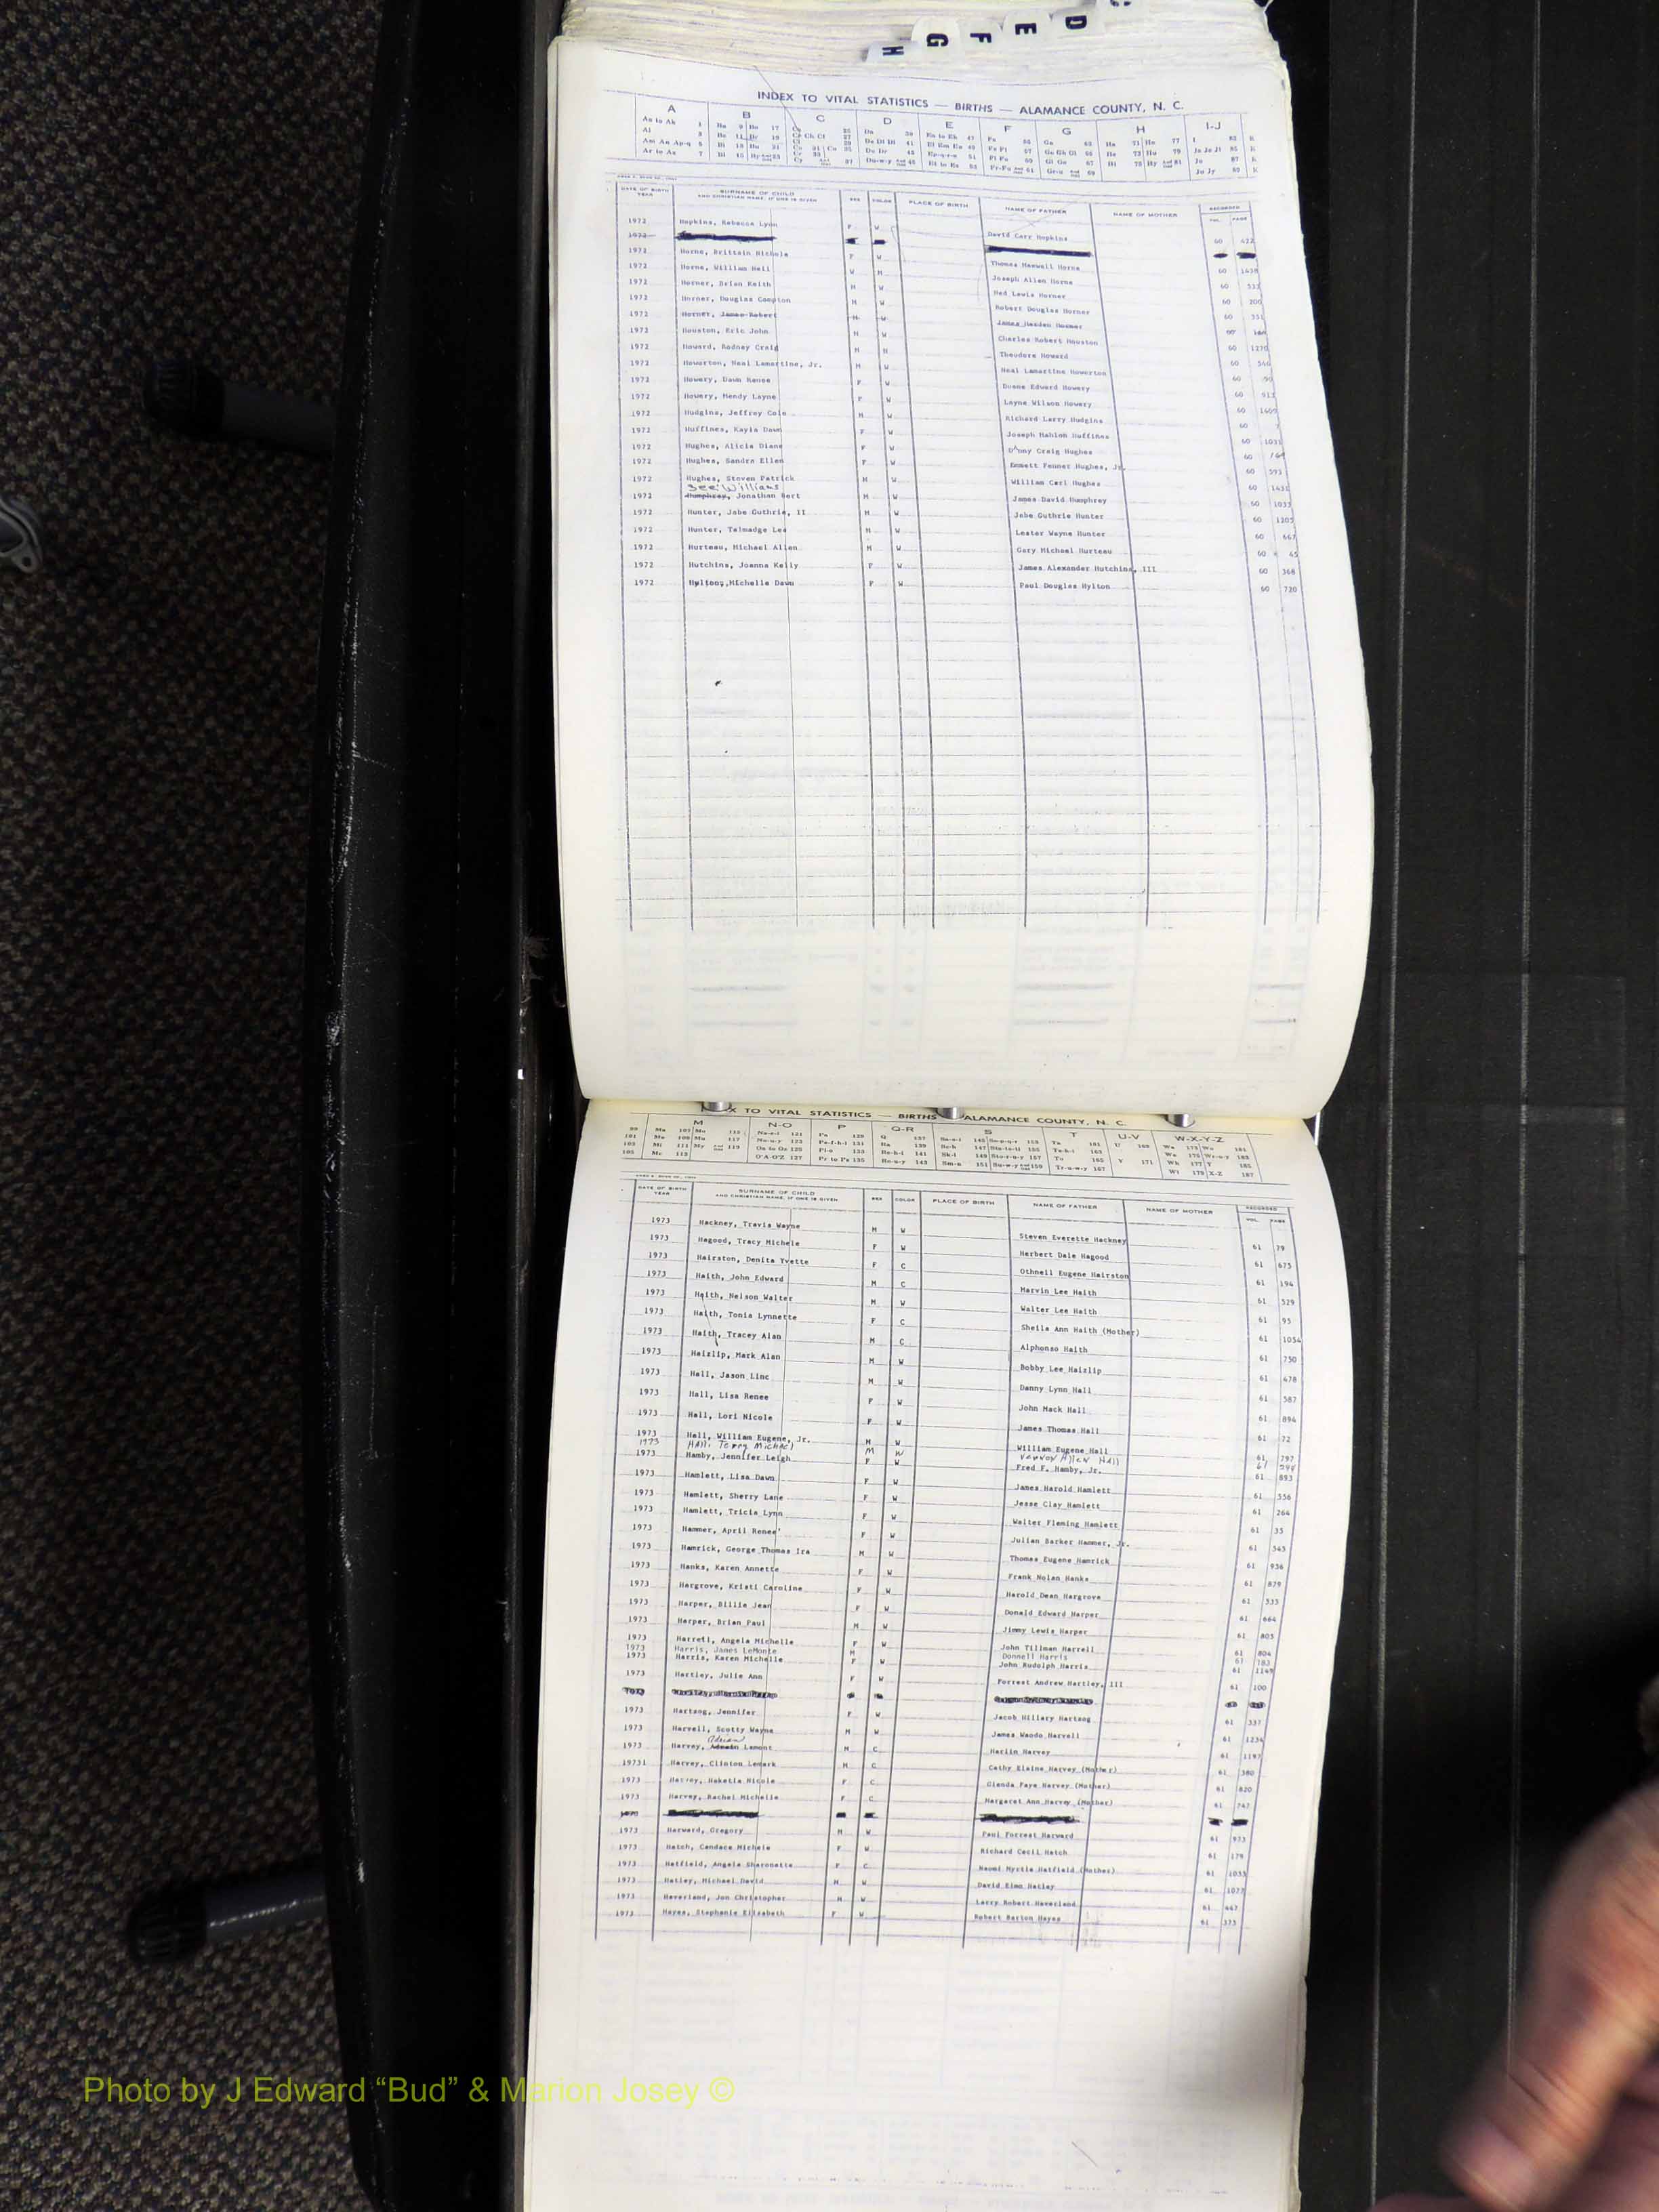 D
E
F
G
H
INDEX TO VITAL STATISTICS — BIRTHS — ALAMANCE COUNTY, N. C.
A B C D E F G H I-J
DATE OF BIRTH YEAR SURNAME OF CHILD AND CHRISTIAN NAME, IF ONE IS GIVEN SEX COLOR PLACE OF BIRTH NAME OF FATHER NAME OF MOTHER RECORDED VOL. PAGE
1972 Hopkins, Rebecca Lynn F W David Carr Hopkins 60 422
1972 Horne, Brittain Nichole F W Thomas Maxwell Horne 60
1972 Horne, William Hall W M Joseph Allen Horne 60
1972 Horner, Brian Keith M W Ned Lewis Horner 60 200
1972 Horner, Douglas Compton M W Robert Douglas Horner 60 351
1972 Horner, James Robert M W James Harden Horner
1972 Houston, Eric John M W Charles Robert Houston 60 1270
1972 Howard, Rodney Craig M N Theodore Howard 60 546
1972 Howerton, Neal Lamartine, Jr. M W Neal Lamartine Howerton 60 90
1972 Howery, Dawn Renee F W Doane Edward Howery 60
1972 Howery, Mendy Layne F W Layne Wilson Howery 60
1972 Hudgins, Jeffrey Cole M W Richard Larry Hudgins 60 7
1972 Huffines, Kayla Dawn F W Joseph Mahlon Huffines 60 1031
1972 Hughes, Alicia Diane F W Danny Craig Hughes 60
1972 Hughes, Sandra Ellen F W Emmett Fenner Hughes, Jr. 60 593
1972 Hughes, Steven Patrick M W William Carl Hughes 60
See: Williams
1972 Humphrey, Jonathan Bert M W James David Humphrey 60 1033
1972 Hunter, Jobe Guthrie, II M W Jobe Guthrie Hunter 60 1205
1972 Hunter, Talmadge Lee M W Lester Wayne Hunter 60 667
1972 Hurteau, Michael Allen M W Gary Michael Hurteau 60 65
1972 Hutchins, Joanna Kelly F W James Alexander Hutchins, III 60 368
1972 Hylton, Michelle Dawn F W Paul Douglas Hylton 60 720
INDEX TO VITAL STATISTICS — BIRTHS — ALAMANCE COUNTY, N. C.
M N-O P Q-R S T U-V W-X-Y-Z
DATE OF BIRTH YEAR SURNAME OF CHILD AND CHRISTIAN NAME, IF ONE IS GIVEN SEX COLOR PLACE OF BIRTH NAME OF FATHER NAME OF MOTHER RECORDED VOL. PAGE
1973 Hackney, Travis Wayne M W Steven Everette Hackney 61 79
1973 Hagood, Tracy Michele F W Herbert Dale Hagood 61 675
1973 Hairston, Denita Yvette F C Othnell Eugene Hairston 61 194
1973 Haith, John Edward M C Marvin Lee Haith 61 529
1973 Haith, Nelson Walter M W Walter Lee Haith 61 95
1973 Haith, Tonia Lynnette F C Sheila Ann Haith (Mother) 61 1054
1973 Haith, Tracey Alan M C Alphonso Haith 61 750
1973 Haizlip, Mark Alan M W Bobby Lee Haizlip 61 478
1973 Hall, Jason Linc M W Danny Lynn Hall 61 587
1973 Hall, Lisa Renee F W John Mack Hall 61 894
1973 Hall, Lori Nicole F W James Thomas Hall 61 72
1973 Hall, William Eugene, Jr. M W William Eugene Hall 61 797
1973 Hall, Terry Michael M W Vernon Allen Hall 61
1973 Hamby, Jennifer Leigh F W Fred F. Hamby, Jr. 61 893
1973 Hamlett, Lisa Dawn F W James Harold Hamlett 61 556
1973 Hamlett, Sherry Lane F W Jesse Clay Hamlett 61 264
1973 Hamlett, Tricia Lynn F W Walter Fleming Hamlett 61 35
1973 Hammer, April Renee' F W Julian Barker Hammer, Jr. 61 345
1973 Hamrick, George Thomas Ira M W Thomas Eugene Hamrick 61 936
1973 Hanks, Karen Annette F W Frank Nolan Hanks 61 879
1973 Hargrove, Kristi Caroline F W Harold Dean Hargrove 61 333
1973 Harper, Billie Jean F W Donald Edward Harper 61 664
1973 Harper, Brian Paul M W Jimmy Lewis Harper 61 805
1973 Harrell, Angela Michelle F W John Tillman Harrell 61 804
1973 Harris, James LeMonte M Donnell Harris 61 183
1973 Harris, Karen Michelle F W John Rudolph Harris 61 1149
1973 Hartley, Julie Ann F W Forrest Andrew Hartley, III 61 100
1973 Hartzog, Jennifer F W Jacob Hillary Hartzog 61 337
1973 Harvell, Scotty Wayne M W James Waodo Harvell 61 1234
Adrian
1973 Harvey, Lamont M C Harlin Harvey 61 1197
19731 Harvey, Clinton Lemark M C Cathy Elaine Harvey (Mother) 61 380
1973 Harvey, Naketia Nicole F C Glenda Faye Harvey (Mother) 61 820
1973 Harvey, Rachel Michelle F C Margaret Ann Harvey (Mother) 61 747
1973 Harward, Gregory M W Paul Forrest Harward 61 973
1973 Hatch, Candace Michele F W Richard Cecil Hatch 61 179
1973 Hatfield, Angela Sharonette F C Naomi Myrtle Hatfield (Mother) 61 1035
1973 Hatley, Michael David M W David Elmo Hatley 61 1077
1973 Haverland, Jon Christopher M W Larry Robert Haverland 61 447
1973 Hayes, Stephanie Elizabeth F W Robert Barton Hayes 61 373
Photo by J Edward “Bud” & Marion Josey ©